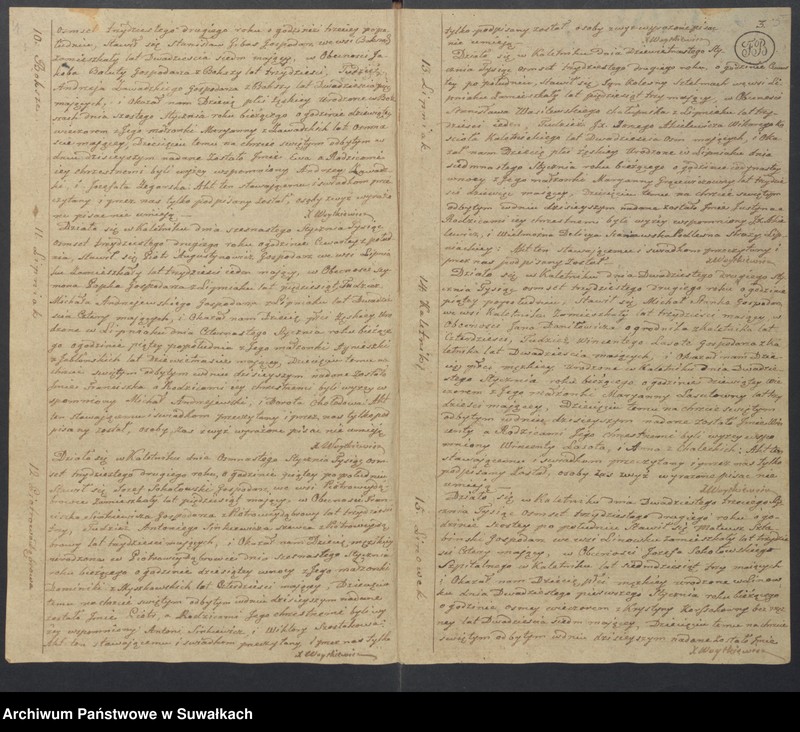 10. Boksze
osmset trzydziestego drugiego roku o godzinie trzeciej popo
łudniu, Stawił się Stanisław Gibas Gospodarz we wsi Bokszy
Zamieszkały lat Dwadzieścia siedm mający, w Obecności Ja
koba Gospodarza z Bokszy lat trzydzieści, Tudzież
Andrzeja Zawadzkiego Gospodarza z Bokszy lat Dwadzieścia
mających, i Okazał nam Dziecię płci żęskiej Urodzone w Bok
szach dnia szostego Stycznia roku bieżącego o godzinie dziewiątej
wieczorem z Jego małżonki Maryanny z Zawadzkich lat Osmna
ście mającej, Dziecięciu temu na chrzcie świętym odbytym w
dniu dzisieyszym nadane Zostało Jmie Ewa a Rodzicami
iey chrzestnemi byli wyżey wspomniony Andrzey Zawadz
ki, i Jozefata Zegarska. Akt ten stawającemu i świadkom prze
czytany i przez nas tylko podpisany Został, osoby zwyż wyra
ne pisac nie umieią —
X Woytkiewicz
11. Lipniak
Działo się w Kaletniku dnia szesnastego Stycznia Tysiąc
osmset trzydziestego drugiego roku o godzinie Czwartey z połu
dnia, Stawił się Piotr Augustynowicz Gospodarz we wsi Lipnia
ku Zamieszkały lat trzydzieści siedm mający, w Obecności Sy
mona Gospodarza z Lipniaku lat pięćdziesiąt Tudzież
Michała Andrzejewskiego Gospodarza z Lipniaku lat Dwadzie
ścia Cztery mających, i Okazał nam Dziecię płci żęskiey Uro
dzone w Lipniaku dnia Czternastego Stycznia roku bieżące
go o godzinie piątey popołudniu z Jego małżonki Agnieszki
z Jabłońskich lat Dziewiętnaście mającey, Dziecięciu temu na
chrzcie świętym odbytym w dniu dzisieyszym nadane zostało
Jmie Franciszka a Rodzicami iey chrzestnemi byli wyżey w
spomniony Michał Andrzejewski, i Dorota Akt
ten stawającemu i świadkom przeczytany i przez nas tylko pod
pisany został, osoby zaś zwyż wyrażone pisac nie umieją
X Woytkiewicz
12. Piotrowa Dąbrowa
Działo się w Kaletniku dnia Osmnastego Stycznia Tysiąc osm
set trzydziestego drugiego roku, o godzinie piątey popołudniu
Stawił się Jozef Sokołowski Gospodarz we wsi Piotrowey Dą
browie Zamieszkały lat pięćdziesiąt mający, w Obecności Fran
ciszka Sinkiewicza Gospodarza z Piotrowey Dąbrowy lat trzydzieści
trzy, Tudzież Antoniego Sinkiewicza, szewca z Piotrowey Dą
browy lat trzydzieści mających, i Okazał nam Dziecię męzkiey
urodzone w Piotrowey Dąbrowie dnia szesnastego Stycznia
roku bieżącego o godzinie dziesiątey wnocy z Jego małżonki
Dominiki z Myszkowskich lat Czterdzieści mającey, Dziecięciu
temu na chrzcie świętym odbytym w dniu dzisieyszym nadane
zostało Jmie Piotr, a Rodzicami Jego chrzestnemi byli wy
żey wspomniony Antoni Sinkiewicz, i Wiktorya
Akt ten stawającemu i świadkom przeczytany i przez nas tylko
X Woytkiewicz
3.
tylko podpisany został osoby zwyż wyrażone pisac
nie umieią —
X Woytkiewicz
13 Lipniak
Działo się w Kaletniku Dnia Dziewiętnastego Sty
cznia Tysiąc osmset trzydziestego drugiego roku, o godzinie Czwar
tey po południu, stawił się Jgn Kalesny Stelmach we wsi Li
pniaku Zamieszkały lat pięćdziesiąt trzy mający, w Obecności
Stanisława Wasilewskiego Chałupnika z Lipniaku lat trzy
dzieści siedm, Tudzież Jx Jgnacego Akielewicza Wikarego Ko
ścioła Kaletnickiego lat Dwadzieścia Osm mających, i Oka
zał nam Dziecię płci żęskiey Urodzone w Lipniaku dnia
siedmnastego Stycznia roku bieżącego o godzinie iedynastey
wnocy z Jego małżonki Maryanny lat trzydzie
ści dziewięć mającey, Dziecięciu temu na chrzcie świętym
odbytym w dniu dzisieyszym nadane zostało Jmie Justyna a
Rodzicami iey chrzestnemi byli wyżey wspomniony Jx Akie
lewicz, i Wielmożna Felixa Podleśna Straży Li
pniackiey: Akt ten stawającemu i świadkom przeczytany i
przez nas podpisany Został —
X Woytkiewicz
14 Kaletnik
Działo się w Kaletniku dnia Dwudziestego Sty
cznia Tysiąc osmset trzydziestego drugiego roku o godzinie
piątey popołudniu, Stawił się Michał Gospodarz
we wsi Kaletniku Zamieszkały lat trzydzieści mający, w
Obecności Jana Daniłowicza ogrodnika z Kaletnika lat
Czterdzieści, Tudzież Wincentego Lasoty Gospodarza z Ka
letnika lat Dwadzieścia mających, i Okazał nam Dzie
cię płci męzkiey urodzone w Kaletniku dnia Dwudzie
stego Stycznia roku bieżącego o godzinie dziewiątey wie
czorem z Jego małżonki Maryanny lat trzy
dzieści mającey, Dziecięciu temu na chrzcie świętym
odbytym w dniu dzisieyszym nadane zostało Jmie Win
centy a Rodzicami Jego chrzestnemi byli wyżey wspo
mniony Wincenty Lasota, i Anna Akt ten
stawającemu i świadkom przeczytany i przez nas tylko
podpisany Został, osoby zaś zwyż wyrażone pisac nie
umieią —
X Woytkiewicz
15 Linowek
Działo się w Kaletniku dnia Dwudziestego Trzeciego Sty
cznia Tysiąc osmset trzydziestego drugiego roku, o go
dzinie Szostey po południu Stawił się Mateusz
Gospodarz we wsi Linowku Zamieszkały lat trzydzie
ści Cztery mający, w Obecności Jozefa Sobolewskiego
Szpitalnego w Kaletniku lat siedmdziesiąt trzy mających
i Okazał nam Dziecię płci męzkiey urodzone w Linow
ku dnia Dwudziestego pierwszego Stycznia roku bieżącego
o godzinie osmey wieczorem z Krystyny
lat Dwadzieścia siedm mającey, Dziecięciu temu na chrzcie
świętym odbytym w dniu dzisieyszym nadane zostało Jmie
X Woytkiewicz
Archiwum Państwowe w Suwałkach